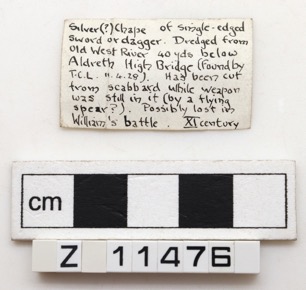 Silver(?) Chape of single-edged
sword or dagger. Dredged from
Old West River 40 yds below
Aldreth High Bridge (found by
T.C.L. 11.4.29). Has been cut
from scabbard while weapon
was still in it (by a flying
spear?). Possibly lost in
William's battle. XI century
cm
Z 11476